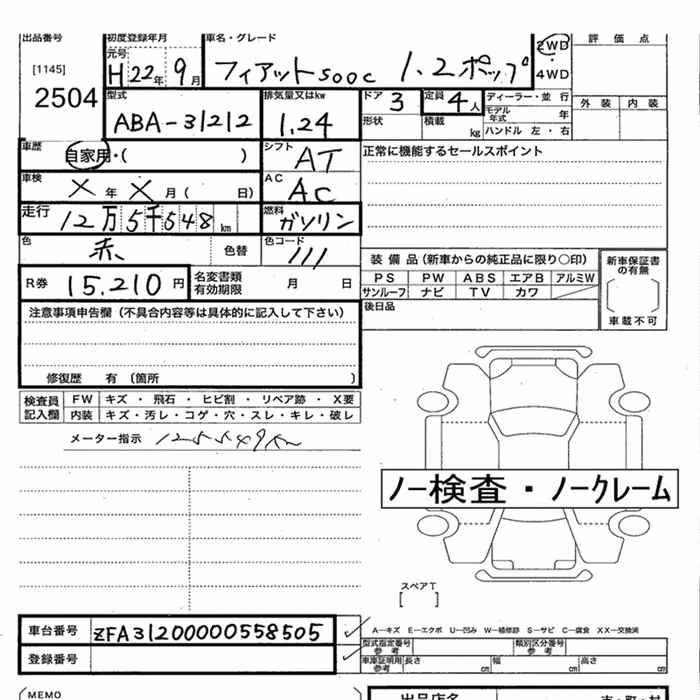 出品番号
[1145]
2504
初度登録年月
元号
H22年9月
車名・グレード
フィアット500c 1.2ポップ
2WD
・
4WD
評価点
外装 内装
型式
ABA-31212
排気量又はkw
1.24
ドア
3
定員
4人
形状
積載
kg
ディーラー・並行
モデル年式
年
ハンドル 左・右
車歴
自家用・( )
シフト
AT
正常に機能するセールスポイント
車検
X年X月( 日)
AC
AC
走行
12万5千548km
燃料
ガソリン
色
赤
色替
色コード
111
装備品(新車からの純正品に限り○印)
PS PW ABS エアB アルミW
サンルーフ ナビ TV カワ
新車保証書の有無
[ ]
車載不可
R券
15.210円
名変書類
有効期限
月 日
後日品
注意事項申告欄(不具合内容等は具体的に記入して下さい)
修復歴 有(箇所 )
検査員記入欄
FW キズ・飛石・ヒビ割・リペア跡・X要
内装 キズ・汚レ・コゲ・穴・スレ・キレ・破レ
メーター指示 125549km
ノー検査・ノークレーム
スペアT
[ ]
車台番号
ZFA31200000558505
登録番号
A−キズ E−エクボ U−凹み W−補修跡 S−サビ C−腐食 XX−交換済
型式指定番号
参考
類別区分番号
参考
車庫証明用
参考
長さ cm 幅 cm 高さ cm
MEMO
出品店名
市・町・村